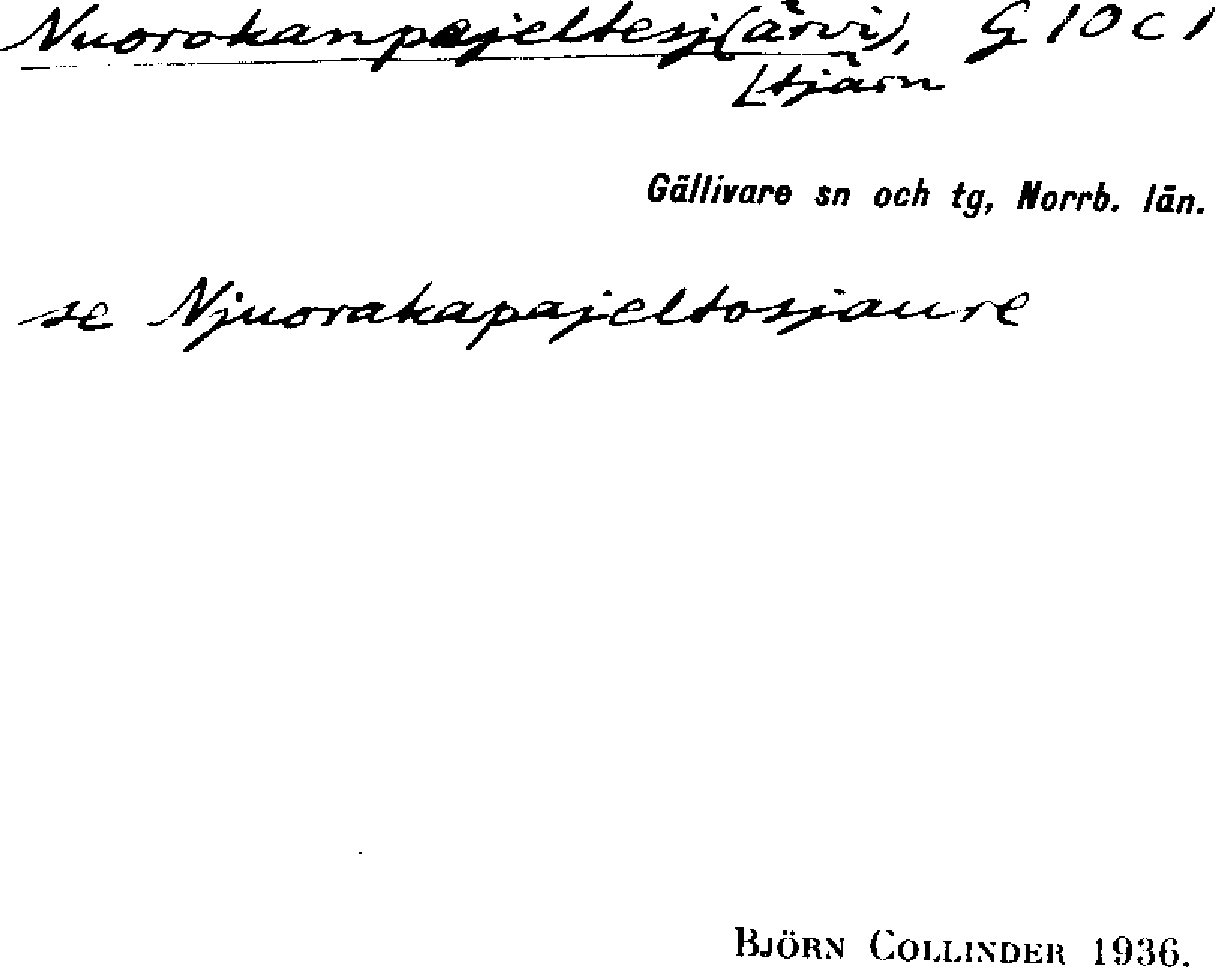 Nuorokanpajeltesj(ärvi), G 10 c 1
[tjärn
Gällivare sn och tg, Norrb. län.
se Njuorakapajeltosjaure
BJÖRN COLLINDER 1936.